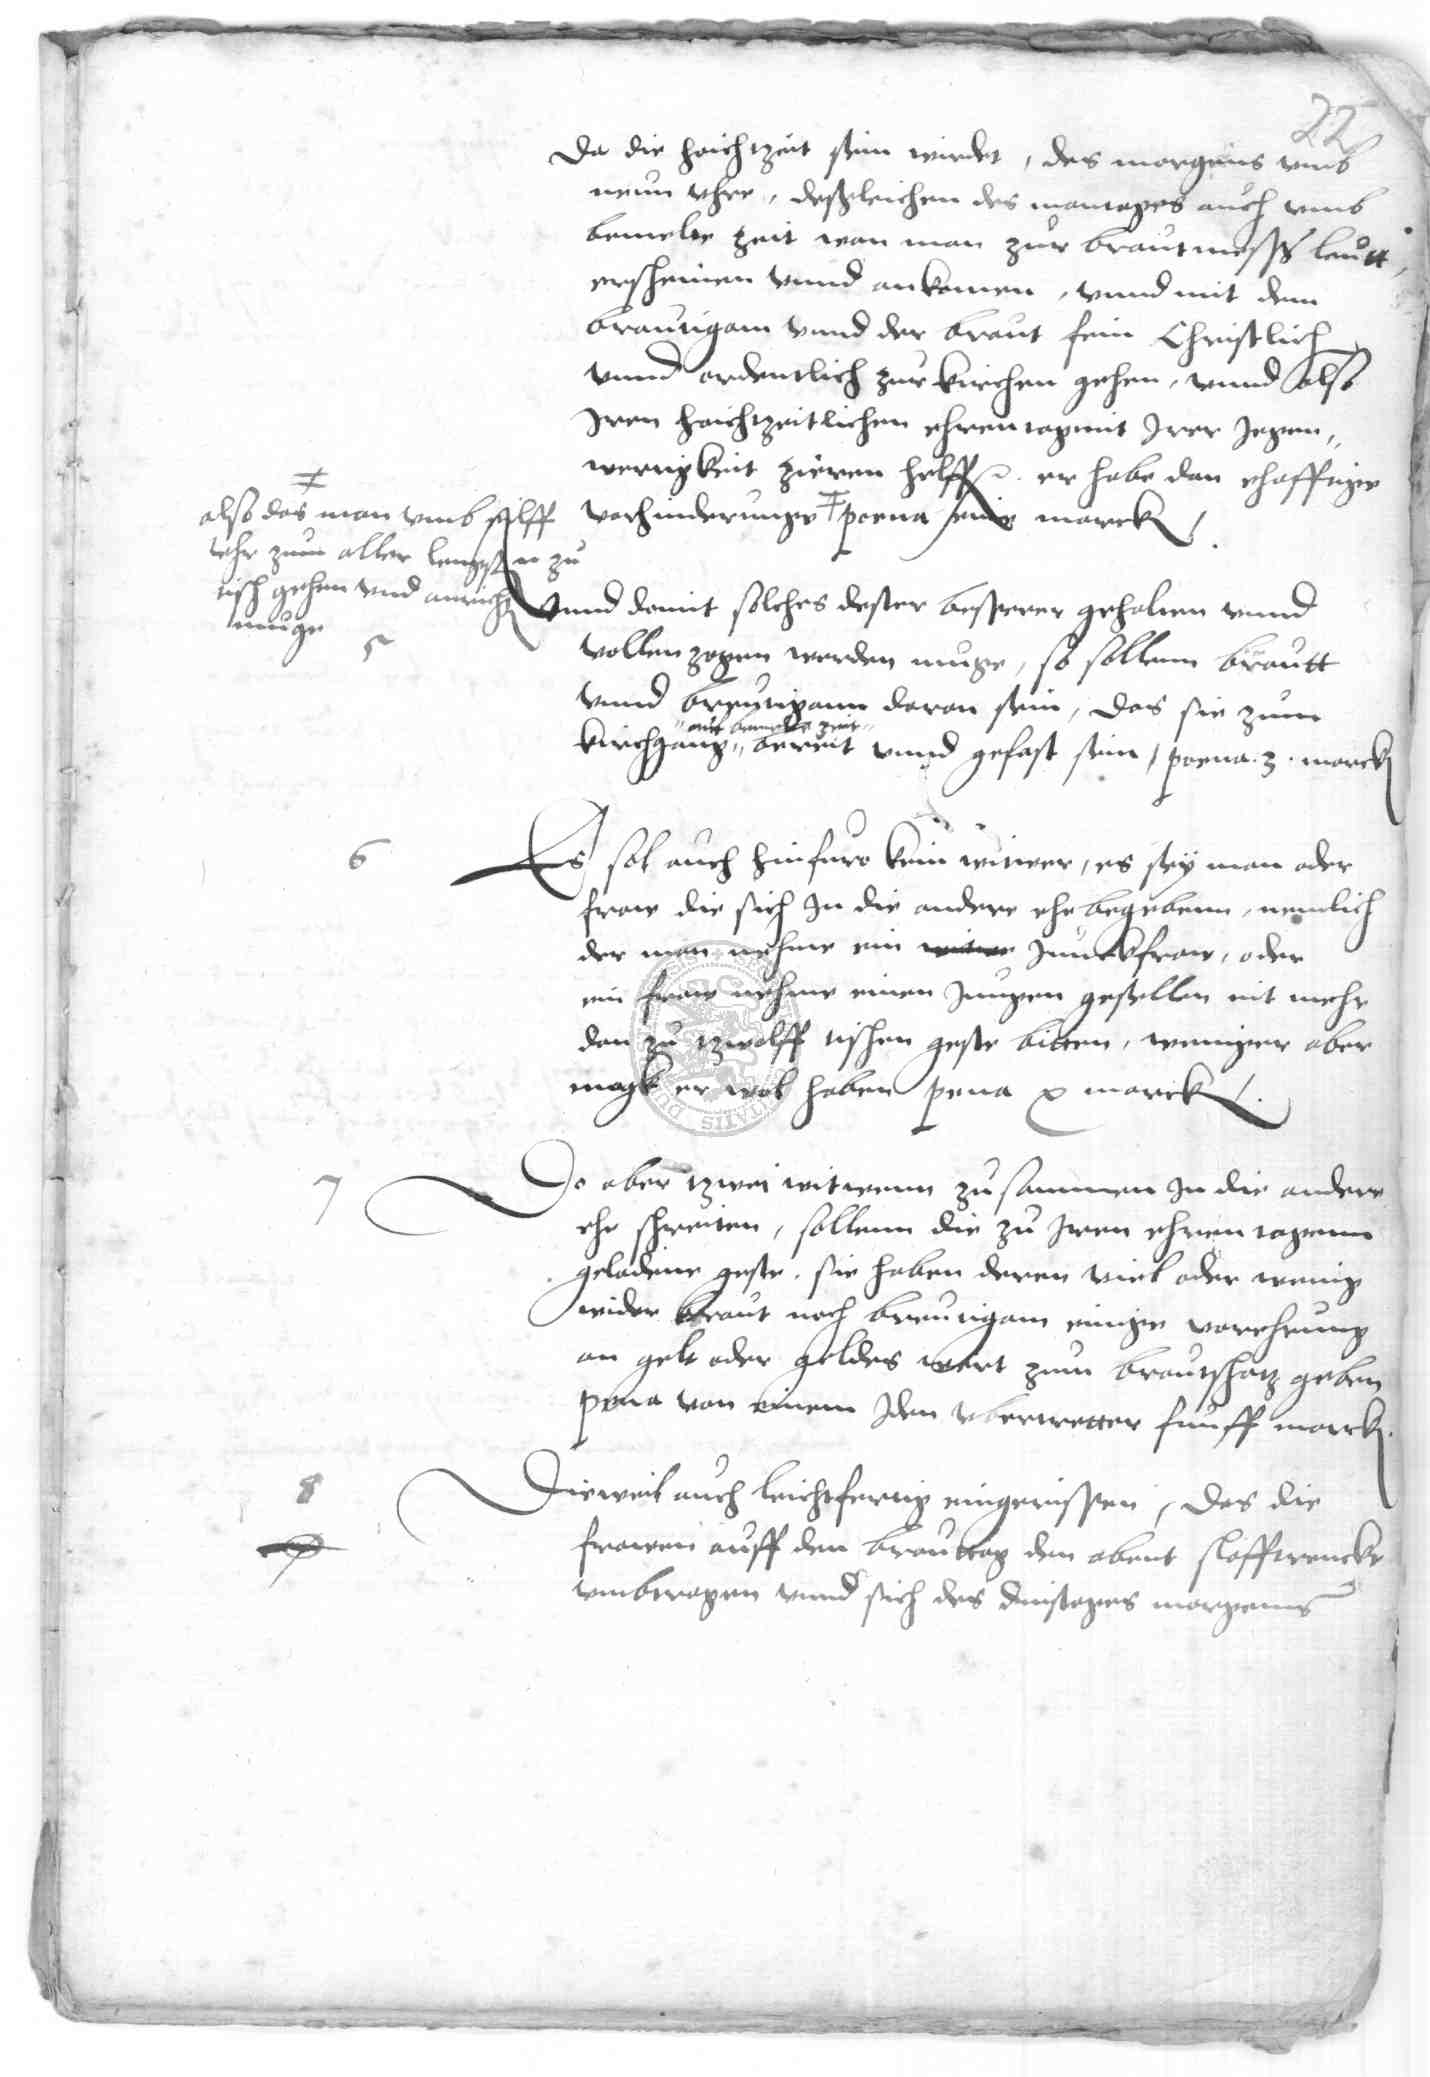 22
Da die hoichtzeit sein wirdet, des morgens vmb
neun vhre, deßgleichen des montages auch vmb
bemelte zeit wan man zur brautmesß leutt,
erscheinen vnnd ankomen, vnnd mit dem
brautigam vnnd der braut fein Christlich
vnnd ordentlich zur kirchen gehen, vnnd also
Iren hoichtzeitlichen ehrentag mit Irer jegen„
wertigkeit zieren helffen. er habe dan ehafftige
verhinderunge ǂ poena eine marck
ǂ
also das man vmb eilff
vhr zum aller lengsten zu
tisch gehen vnd anrichten
muge
5
Vnnd damit solches dester besserer gehalten vnnd
vollenzogen werden muge, so sollenn brautt
vnnd breutigam daran sein, das sie zum
„auf bemelte zeit„
kirchgang„ bereit vnnd gefast sein, poena. 3. marck
6
Es sol auch hinfuro kein witwer, es sey man oder
fraw die sich In die andere ehe begebenn, nemlich
der man nehme ein witwe Junckfraw, oder
ein fraw nehme einen Jungen gesellen nit mehr
dan zu tzwolff tischen geste bitten, weniger aber
magk er wol haben pena x marck
7
Do aber tzwei witwenn zusammen In die andere
ehe schreiten, sollenn die zu Iren ehrentagenn
geladene geste, sie haben deren viel oder wenig
wider braut noch breutigam einige verehrung
an gelt oder geldes wert zum brautschatz geben
pena von einem Iden vbertretter funff marck.
8
Dieweil auch leichtfertig eingerissen, das die
frawen auff den brauttag den abent slaffdrencke
vmbtragen vnnd sich des dinstages morgens